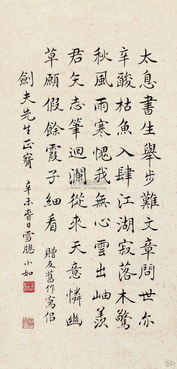 太息書生舉步難文章問世亦
辛酸枯魚入肆江湖寂落木驚
秋風雨寒愧我無心雲出岫羨
君矢志筆迴瀾從來天意憐幽
草願假餘霞子細看 贈友舊作寫倡
劍夫先生正賓 辛未春日雪牕小如